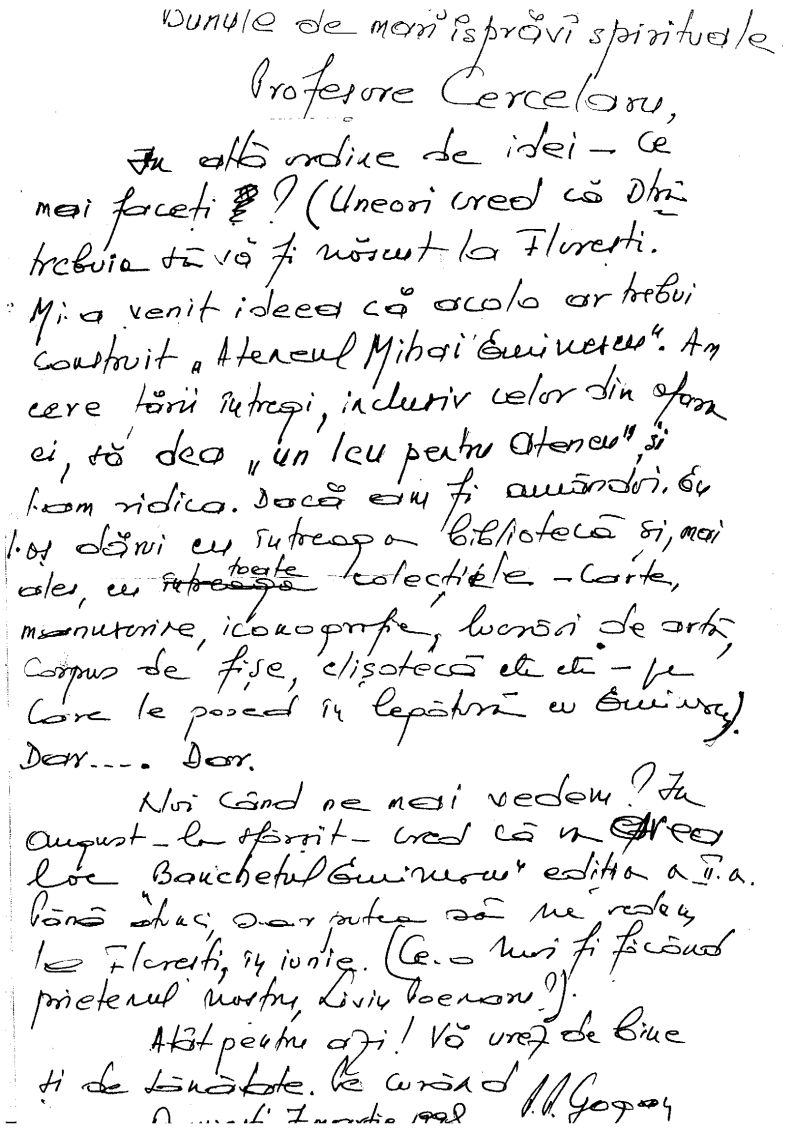 Bunule de mari isprăvi spirituale
Profesore Cercelaru,
In altă ordine de idei – Ce
mai faceți ? (Uneori cred că Dtră
trebuia să vă fi născut la Florești.
Mi-a venit ideea că acolo ar trebui
construit „Ateneul Mihai Eminescu”. Am
cere țării întregi, inclusiv celor din afara
ei, să dea „un leu pentru Ateneu”, și
l-am ridica. Dacă am fi amândoi. Eu
l-aș dărui cu întreaga bibliotecă și, mai
ales, cu toate colecțiile – Carte,
manuscrise, iconografie, lucrări de artă,
Corpus de fișe, clișotecă etc etc – pe
Care le posed în legătură cu Eminescu).
Dar.... Dar.
Noi când ne mai vedem? In
august – la sfârșit – cred că va avea
loc Banchetul Eminescu” ediția a II-a.
Până atunci, s-ar putea să ne vedem
la Florești, în iunie. (Ce-o mai fi făcând
prietenul nostru, Liviu Poenaru?).
Atât pentru azi! Vă urez de bine
și de sănătate. Pe curând
7 martie 1998